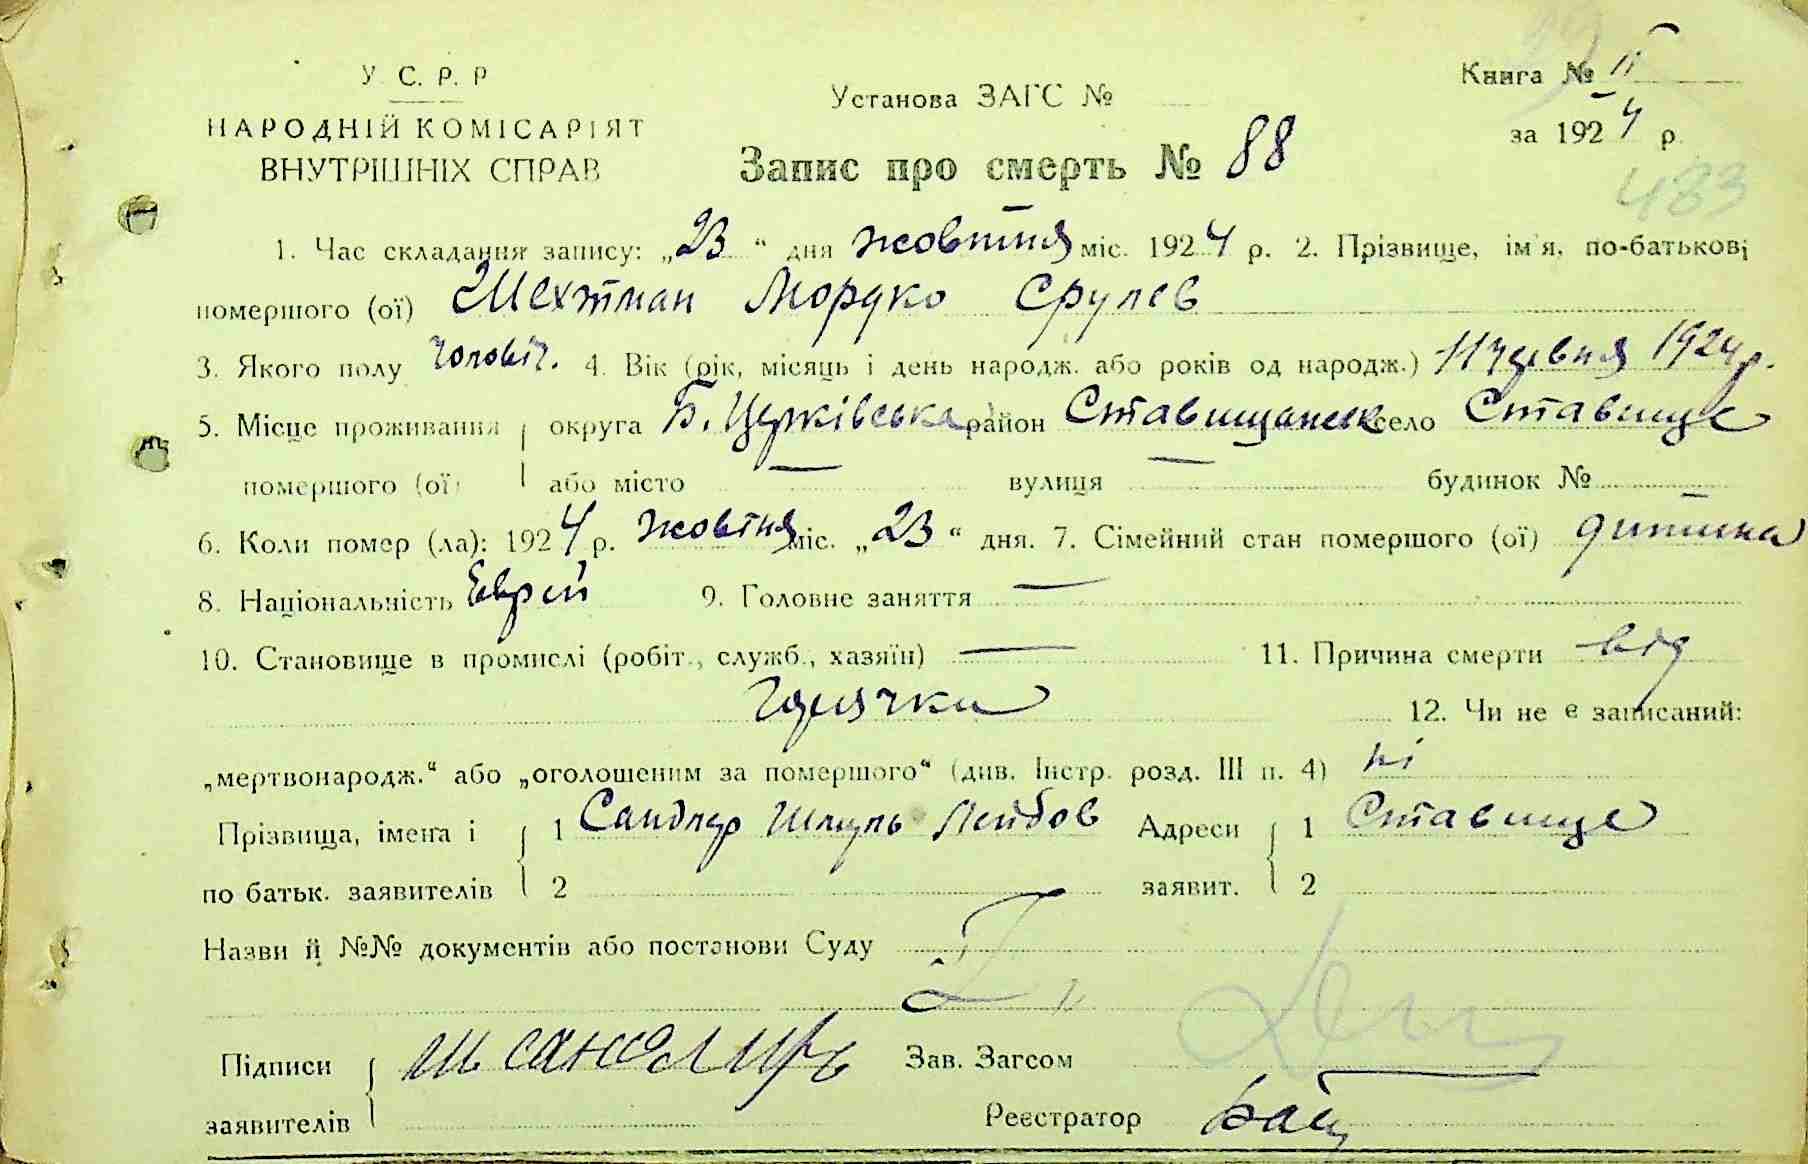 У. С. Р. Р
Книга № II
Установа ЗАГС №
НАРОДНІЙ КОМІСАРІЯТ
за 1924 р.
ВНУТРІШНІХ СПРАВ
Запис про смерть № 88
483
1. Час складання запису: „23“ дня жовтня міс. 1924 р. 2. Прізвище, ім'я, по-батькові
помершого (ої) Шехтман Мордко Срулев
3. Якого полу чоловіч. 4. Вік (рік, місяць і день народж. або років од народж.) 11 червня 1924 р.
5. Місце проживання округа Б. Церківська район Ставищанськ село Ставище
помершого (ої) або місто — вулиця — будинок №
6. Коли помер (ла): 1924 р. жовтня міс. „23“ дня. 7. Сімейний стан помершого (ої) дитина
8. Національність Еврей 9. Головне заняття —
10. Становище в промислі (робіт., служб., хазяїн) — 11. Причина смерти від
горячки 12. Чи не є записаний:
„мертвонародж.“ або „оголошеним за помершого“ (див. Інстр. розд. III п. 4) ні
Прізвища, імена і 1 Сандлер Шмуль Лейбов Адреси 1 Ставище
по батьк. заявителів 2 заявит. 2
Назви й №№ документів або постанови Суду
Підписи Зав. Загсом
заявителів Реєстратор